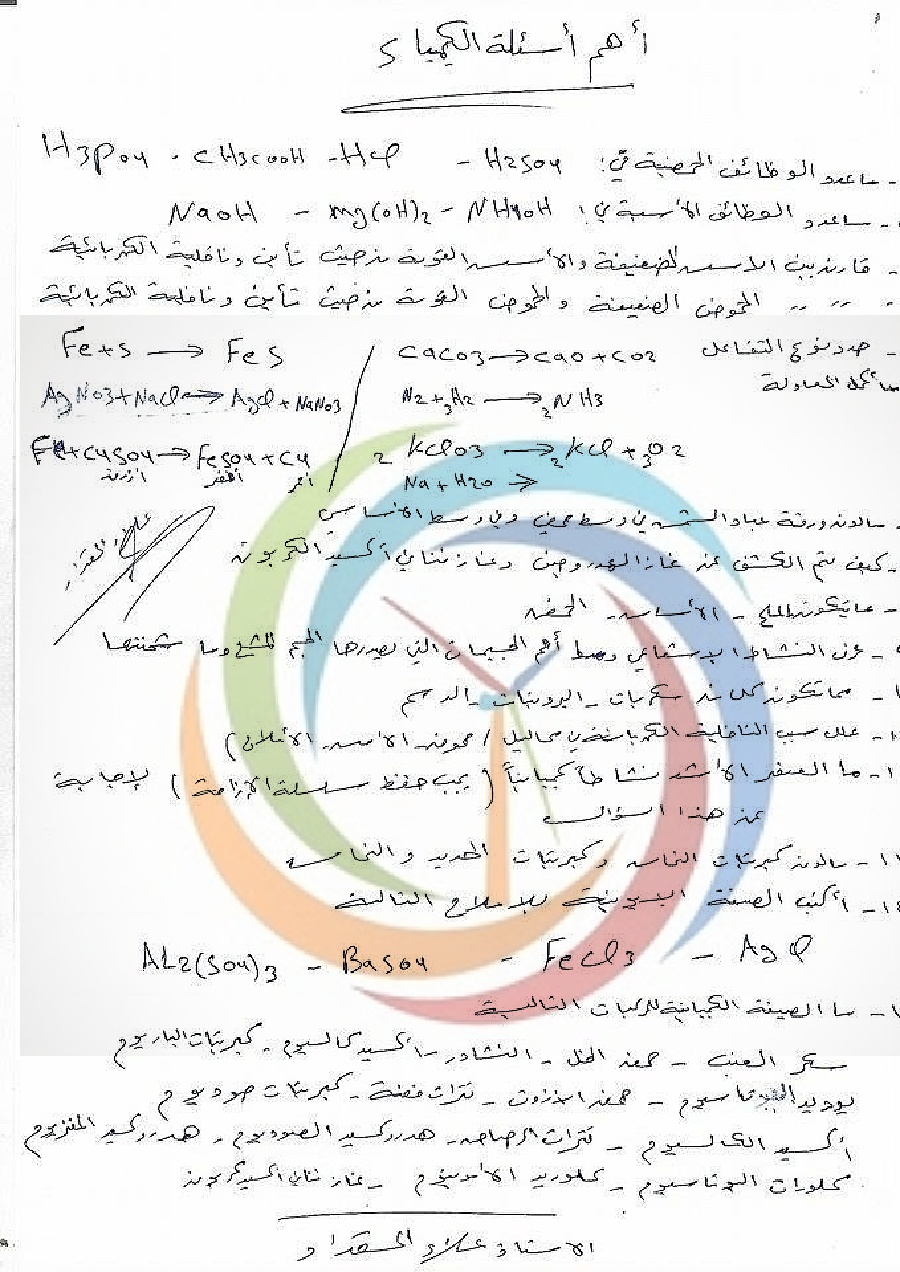 أهم أسئلة الكيمياء
- ما عدد الوظائف الحمضية في: H2SO4 - HCl - CH3COOH - H3PO4
- ما عدد الوظائف الأساسية في: NH4OH - Mg(OH)2 - NaOH
- قارن بين الأسس الضعيفة والأسس القوية من حيث تأين وناقلية الكهربائية
- " " " الحموض الضعيفة والحموض القوية من حيث تأين وناقلية الكهربائية
- حدد نوع التفاعل CaCO3 → CaO + CO2 / Fe + S → FeS
وأكمل المعادلة N2 + 3H2 → 2NH3 / AgNO3 + NaCl → AgCl + NaNO3
2KClO3 → 2KCl + 3O2 / Fe + CuSO4 → FeSO4 + Cu
Na + H2O → أزرق أخضر أحمر
- ما لون ورقة عباد الشمس في وسط حمضي وفي وسط الأساسي
- كيف يتم الكشف عن غاز الهيدروجين وغاز ثنائي أكسيد الكربون
- مما يتكون الملح - الأساس - الحمض
- عرف النشاط الإشعاعي وما أهم الجسيمات التي يصدرها الجسم المشع وما شحنتها
- مما تتكون كل من سكريات - البروتينات - الدسم
- علل سبب الناقلية الكهربائية في محاليل (حموض الأسس الأملاح)
- ما العنصر الأشد نشاطاً كيميائياً (يجب حفظ سلسلة الإزاحة) لإجابة
عن هذا السؤال
- ما لون كبريتات النحاس وكبريتات الحديد والنحاس
١٤- أكتب الصيغة الأيونية للأملاح التالية
AgCl - FeCl3 - BaSO4 - AL2(SO4)3
- ما الصيغة الكيميائية للمركبات التالية
سكر العنب - حمض الخل - النشادر - أكسيد كالسيوم - كبريتات الباريوم
يوديد البوتاسيوم - حمض الآزوت - نترات فضة - كبريتات صوديوم
أكسيد الكالسيوم - نترات الرصاص - هدروكسيد الصوديوم - هدروكسيد المغنزيوم
كلورات البوتاسيوم - كلوريد الأمونيوم - غاز ثنائي أكسيد كربون
الاستاذ علاء المقداد